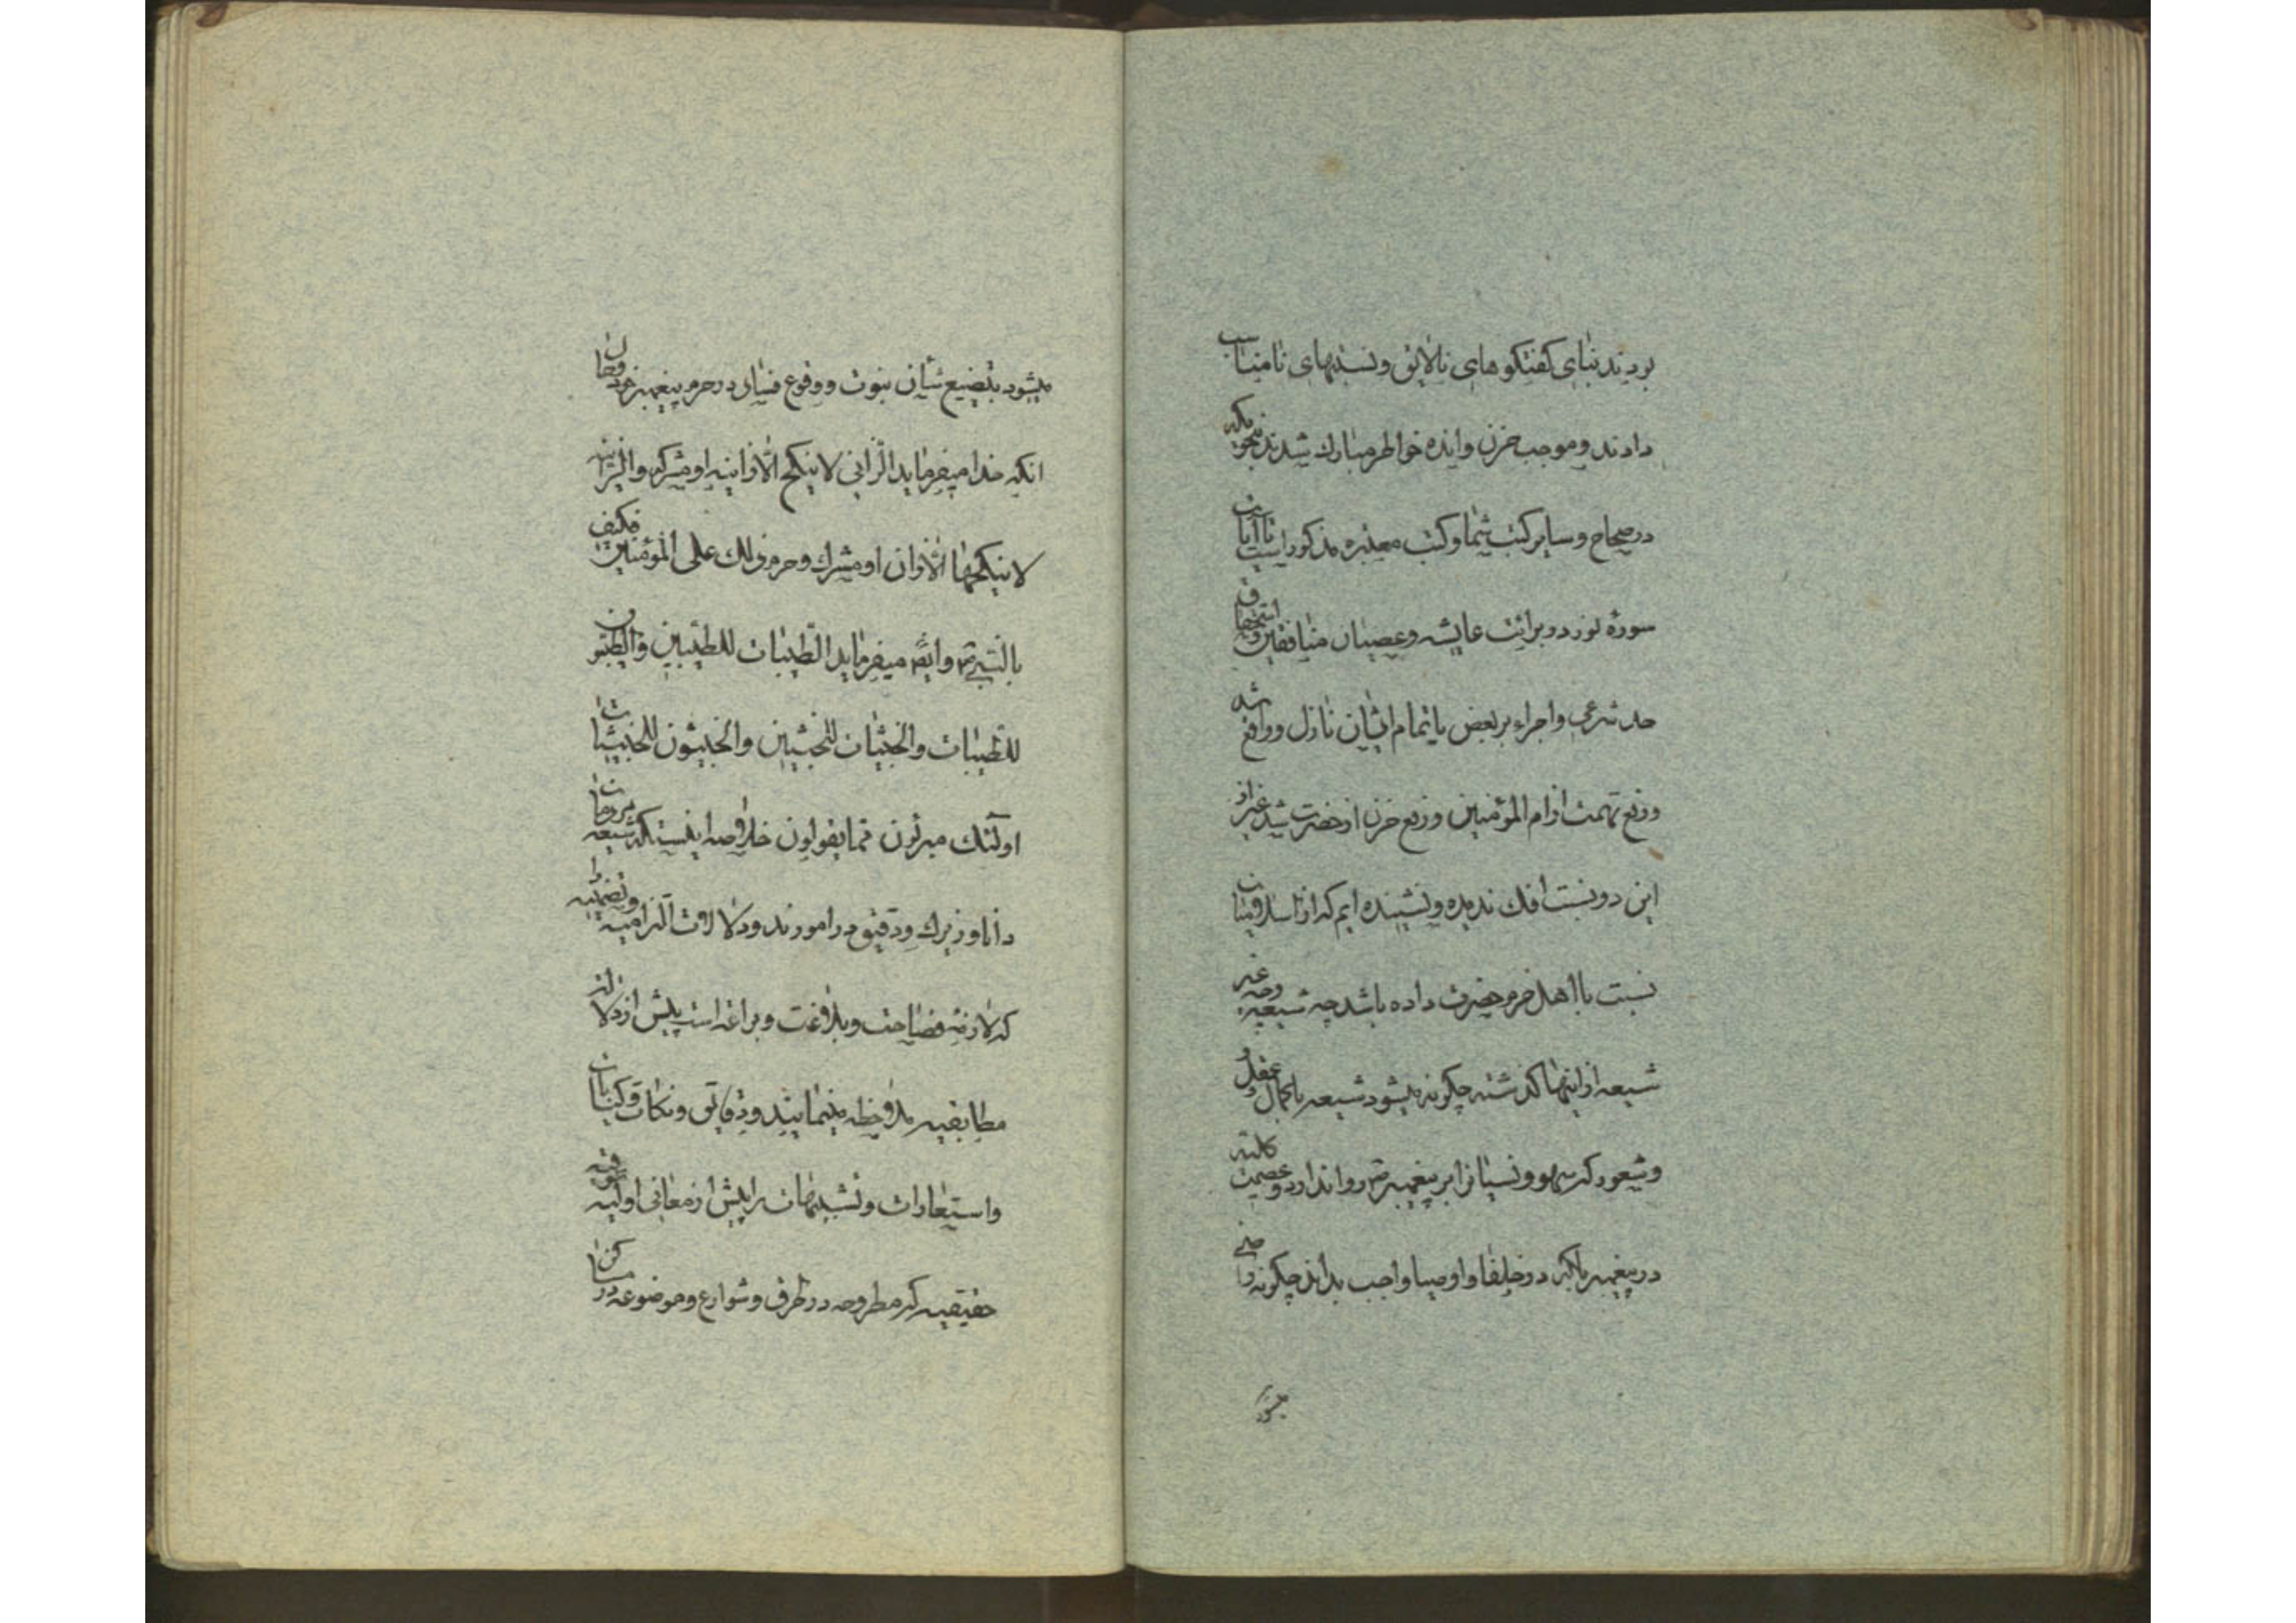 بردند بنای گفتگوهای نالایق و نسبتهای نامناسب
دادند و موجب حزن و اندوه خواطر مبارك شدند بنحویکه
در صحاح و سایر کتب شما و کتب معتبره مذکور است تا آیات
سورهٔ نور در برائت عایشه و عصیان منافقین و استحقاق
حد شرعی و اجراء بر بعض یا تمام ایشان نازل و واقع شد
و رفع تهمت از ام المؤمنین و رفع حزن از حضرت شد غیر از
این دو نسبت افك ندیده و نشینده ایم که از
نسبت با اهل حرم حضرت داده باشد چه شیعه و چه غیر
شیعه از اینها گذشته چگونه میشود شیعه با کمال عقل و
و شعور که سهو و نسیانرا بر پیغمبر ص روا ندارد و عصمت کلیه
در پیغمبر بلکه در خلفا و اوصیا واجب بداند چگونه راضی
میشود
میشود بتضیع شان نبوت و وقوع فساد در حرم پیغمبر خود و حال
انکه خدا میفرماید الزانی لا ینکح الا زانیه او مشرکه والزانیه
لا ینکحها الا زان او مشرك و حرم ذلك علی المؤمنین فکیف
بالنبی ص و ایضا میفرماید الطیبات للطیبین والطیبون
للطیبات والخبیثات للخبیثین والخبیثون للخبیثات
اولئك مبرئون مما یقولون خلاصه اینست که شیعه
دانا و زیرك و دقیق در امورند و دلالات التزامیه و تضمنیه را
که لازمه فصاحت و بلاغت و براعه است پیش از دلالت
مطابقیه ملاحظه مینمایند و دقایق و نکات و کنایات
و استعارات و تشبیهات را پیش از معانی اولیه
حقیقیه که مطروحه در طرق و شوارع و موضوعه در